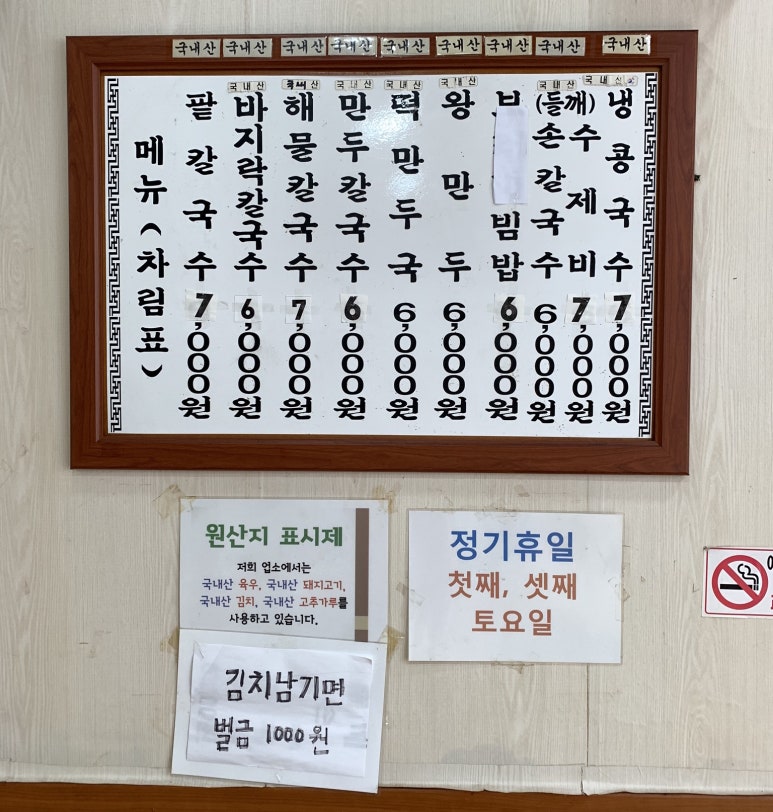 국내산 국내산 국내산 국내산 국내산 국내산 국내산 국내산 국내산
국내산 국내산 국내산 국내산 국내산 국내산
메뉴(차림표)
팥칼국수 7,000원
바지락칼국수 6,000원
해물칼국수 7,000원
만두칼국수 6,000원
떡만두국 6,000원
왕만두 6,000원
빔밥 6,000원
손칼국수 6,000원
(들깨)수제비 7,000원
냉콩국수 7,000원
원산지 표시제
저희 업소에서는
국내산 육우, 국내산 돼지고기,
국내산 김치, 국내산 고추가루를
사용하고 있습니다.
김치남기면
벌금 1000원
정기휴일
첫째, 셋째
토요일